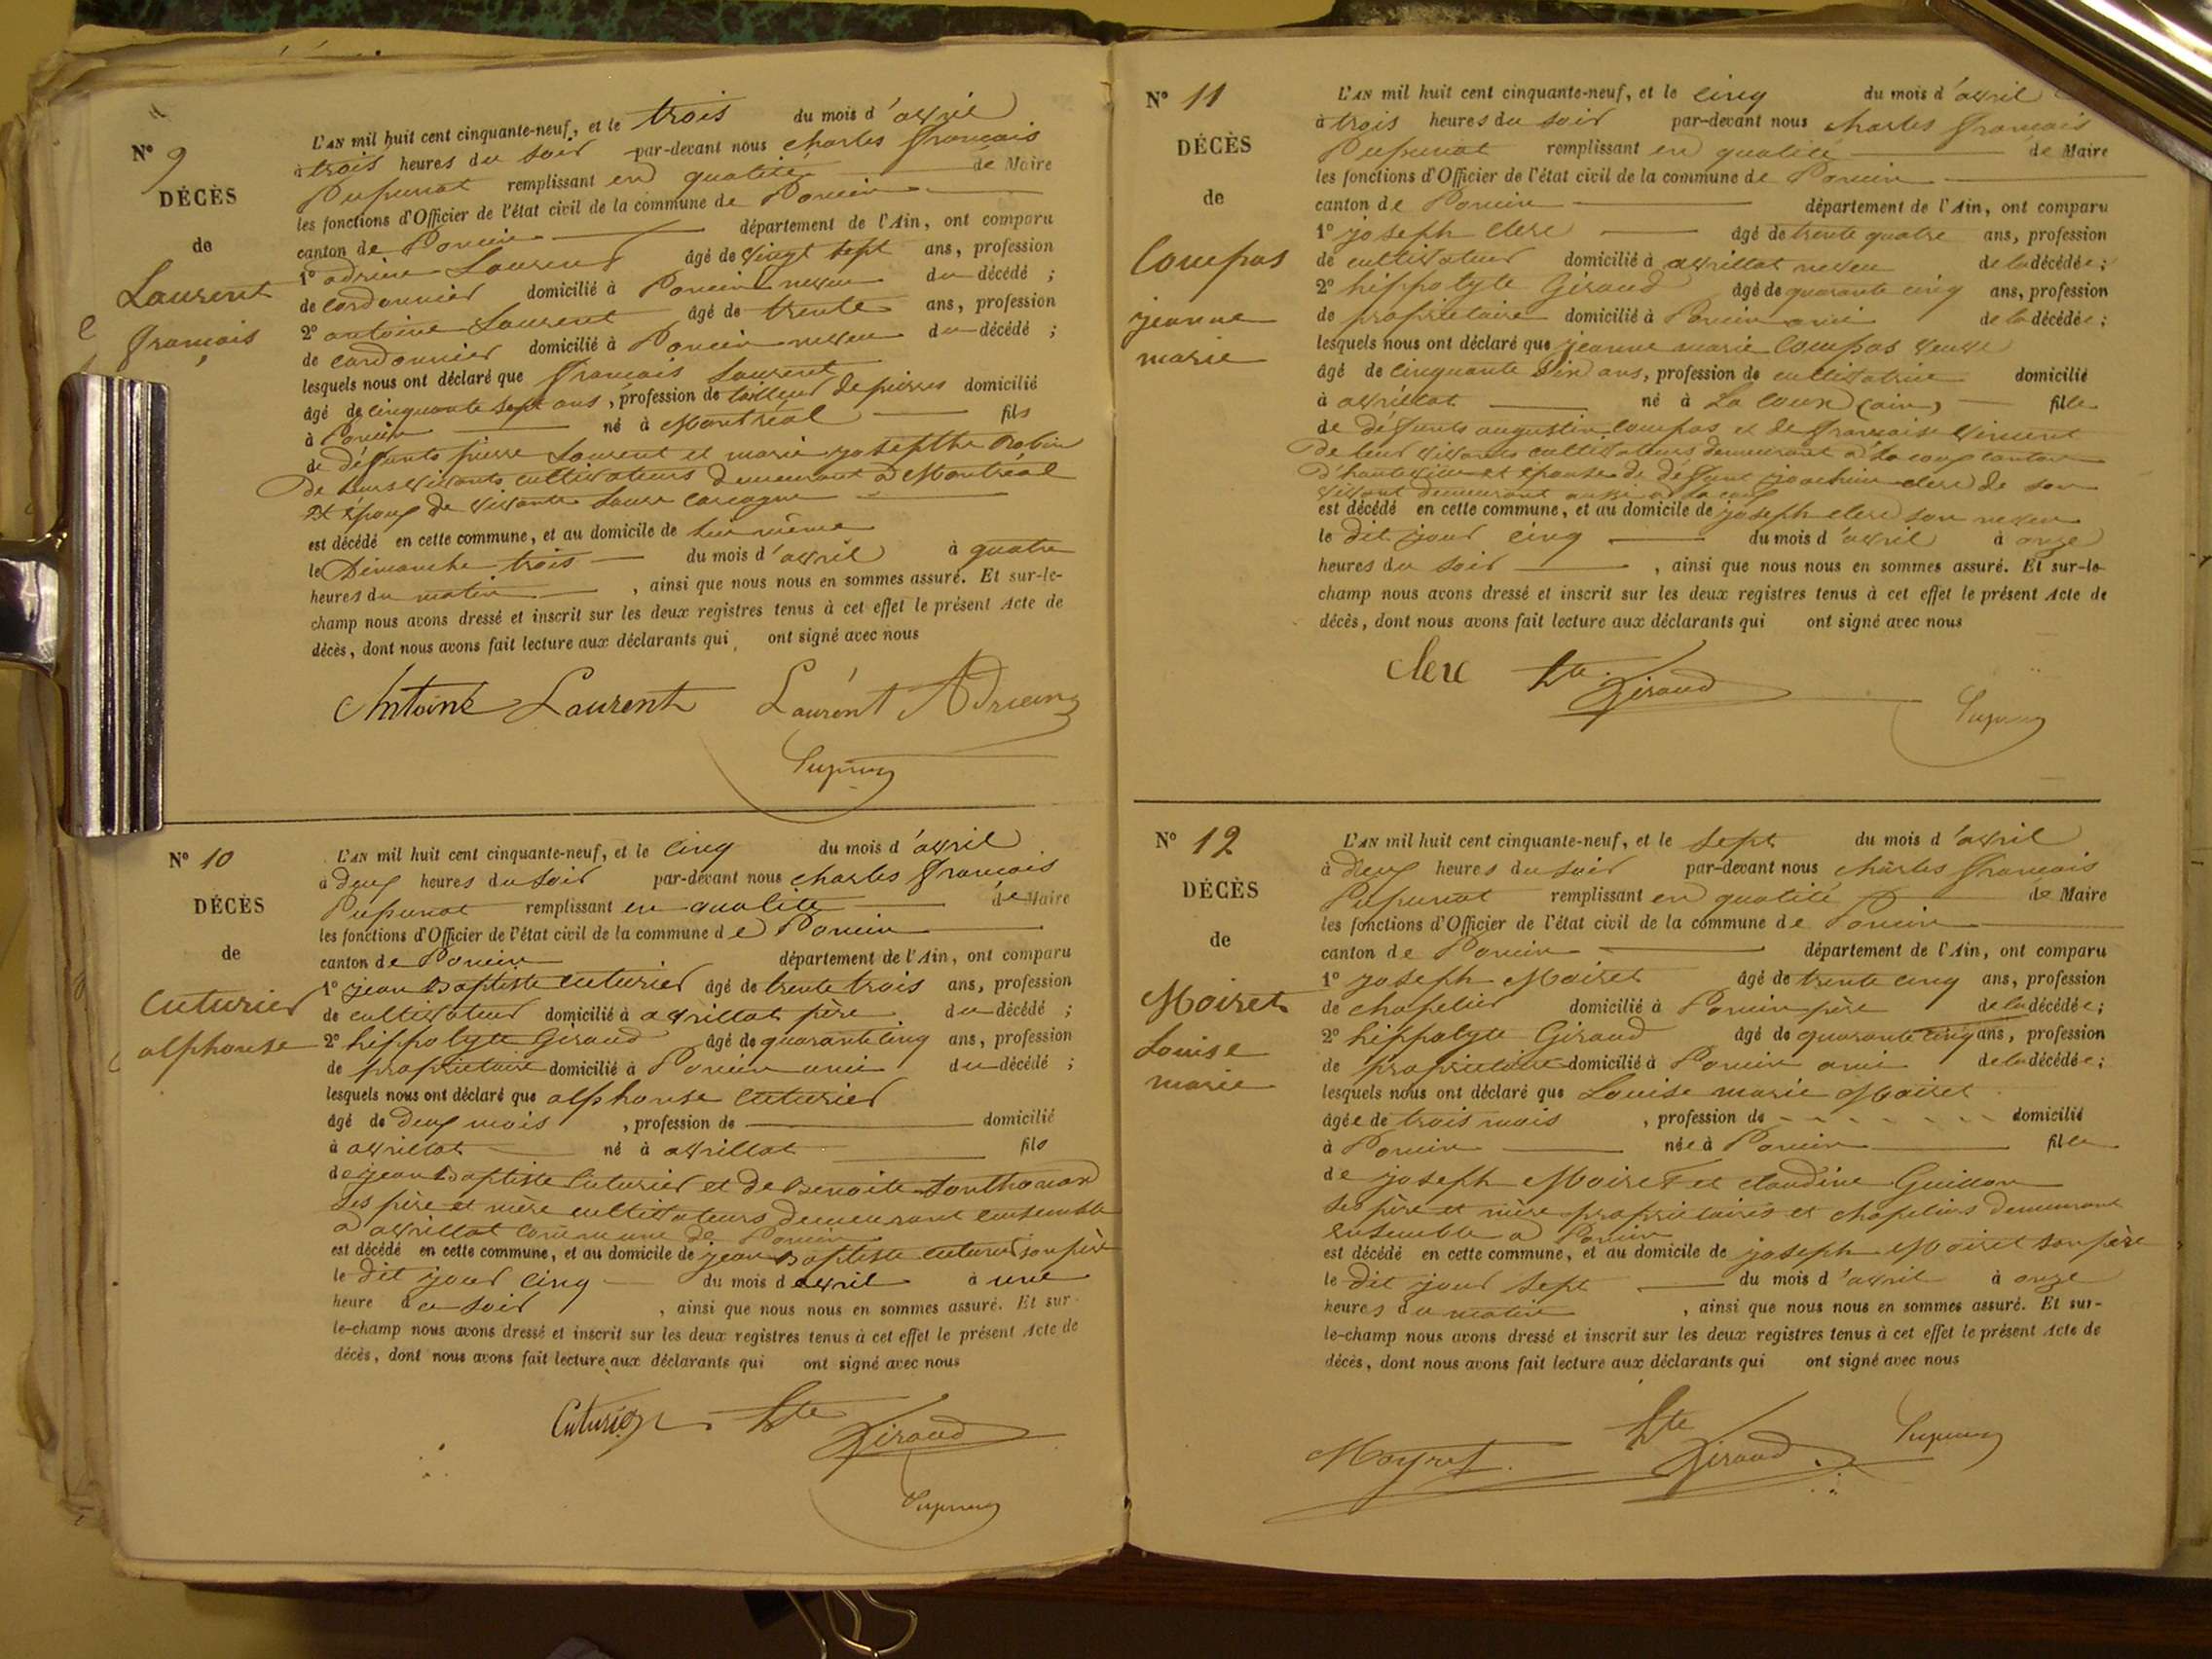 N° 9
DÉCÈS
de
Laurent
françois
L'AN mil huit cent cinquante-neuf, et le trois du mois d'avril
à trois heures du soir par-devant nous charles françois
Pupunat remplissant en qualité de Maire
les fonctions d'Officier de l'état civil de la commune de Poncin
canton de Poncin département de l'Ain, ont comparu
1° adrien Laurent âgé de vingt sept ans, profession
de cordonnier domicilié à Poncin neveu du décédé ;
2° antoine Laurent âgé de trente ans, profession
de cordonnier domicilié à Poncin neveu du décédé ;
lesquels nous ont déclaré que françois Laurent
âgé de cinquante sept ans, profession de tailleur de pierres domicilié
à Poncin né à Montréal fils
de défunts pierre Laurent et marie josephthe Robin
de leurs vivants cultivateurs demeurant à Montréal
et époux de vivante Laure
est décédé en cette commune, et au domicile de lui même
le Dimanche trois du mois d'avril à quatre
heures du matin, ainsi que nous nous en sommes assuré. Et sur-le-
champ nous avons dressé et inscrit sur les deux registres tenus à cet effet le présent Acte de
décès, dont nous avons fait lecture aux déclarants qui ont signé avec nous
Antoine Laurent Laurent Adrien
N° 10
DÉCÈS
de
Cuturier
alphonse
L'AN mil huit cent cinquante-neuf, et le cinq du mois d'avril
à deux heures du soir par-devant nous charles françois
Pupunat remplissant en qualité de Maire
les fonctions d'Officier de l'état civil de la commune de Poncin
canton de Poncin département de l'Ain, ont comparu
1° jean Baptiste Cuturier âgé de trente trois ans, profession
de cultivateur domicilié à avrillat père du décédé ;
2° hippolyte Giraud âgé de quarante cinq ans, profession
de propriétaire domicilié à Poncin ami du décédé ;
lesquels nous ont déclaré que alphonse Cuturier
âgé de deux mois, profession de domicilié
à avrillat né à avrillat fils
de jean Baptiste Cuturier et de Benoite Sonthonax
ses père et mère cultivateurs demeurant ensemble
à avrillat commune de Poncin
est décédé en cette commune, et au domicile de jean Baptiste Cuturier son père
le dit jour cinq du mois d'avril à une
heure du soir, ainsi que nous nous en sommes assuré. Et sur-
le-champ nous avons dressé et inscrit sur les deux registres tenus à cet effet le présent Acte de
décès, dont nous avons fait lecture aux déclarants qui ont signé avec nous
Cuturier hte Giraud
N° 11
DÉCÈS
de
Compas
jeanne
marie
L'AN mil huit cent cinquante-neuf, et le cinq du mois d'avril
à trois heures du soir par-devant nous charles françois
Pupunat remplissant en qualité de Maire
les fonctions d'Officier de l'état civil de la commune de Poncin
canton de Poncin département de l'Ain, ont comparu
1° joseph clerc âgé de trente quatre ans, profession
de cultivateur domicilié à avrillat neveu de la décédée ;
2° hippolyte Giraud âgé de quarante cinq ans, profession
de propriétaire domicilié à Poncin ami de la décédée ;
lesquels nous ont déclaré que jeanne marie Compas veuve
âgé de cinquante dix ans, profession de cultivatrice domicilié
à avrillat né à La coux (ain) fille
de défunts augustin compas et de françoise vincent
de leur vivants cultivateurs demeurant à La coux canton
d'hauteville et épouse de défunt joachim clerc de son
vivant demeurant aussi à La coux
est décédé en cette commune, et au domicile de joseph clerc son neveu
le dit jour cinq du mois d'avril à onze
heures du soir, ainsi que nous nous en sommes assuré. Et sur-le-
champ nous avons dressé et inscrit sur les deux registres tenus à cet effet le présent Acte de
décès, dont nous avons fait lecture aux déclarants qui ont signé avec nous
clerc hte Giraud
N° 12
DÉCÈS
de
Moiret
Louise
marie
L'AN mil huit cent cinquante-neuf, et le sept du mois d'avril
à deux heures du soir par-devant nous charles françois
Pupunat remplissant en qualité de Maire
les fonctions d'Officier de l'état civil de la commune de Poncin
canton de Poncin département de l'Ain, ont comparu
1° joseph Moiret âgé de trente cinq ans, profession
de chapelier domicilié à Poncin père de la décédée ;
2° hippolyte Giraud âgé de quarante cinq ans, profession
de propriétaire domicilié à Poncin ami de la décédée ;
lesquels nous ont déclaré que Louise marie Moiret
âgée de trois mois, profession de domicilié
à Poncin née à Poncin fille
de joseph Moiret et claudine Guillon
ses père et mère propriétaires et chapeliers demeurant
ensemble à Poncin
est décédé en cette commune, et au domicile de joseph Moiret son père
le dit jour sept du mois d'avril à onze
heures du matin, ainsi que nous nous en sommes assuré. Et sur-
le-champ nous avons dressé et inscrit sur les deux registres tenus à cet effet le présent Acte de
décès, dont nous avons fait lecture aux déclarants qui ont signé avec nous
Moyret hte Giraud